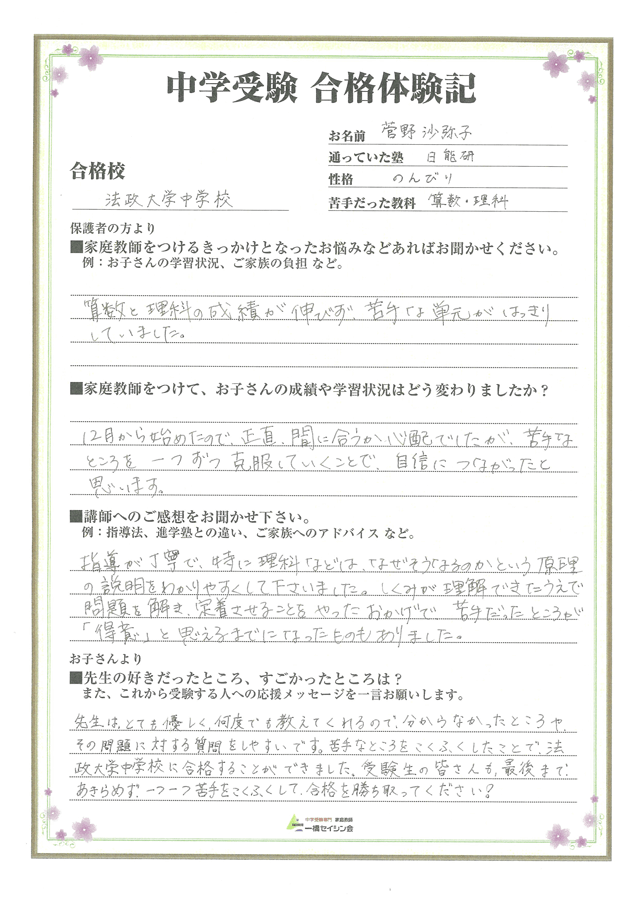 中学受験 合格体験記
お名前 菅野 沙弥子
通っていた塾 日能研
合格校
性格 のんびり
法政大学中学校
苦手だった教科 算数・理科
保護者の方より
■家庭教師をつけるきっかけとなったお悩みなどあればお聞かせください。
例：お子さんの学習状況、ご家族の負担 など。
算数と理科の成績が伸びず、苦手な単元がはっきり
していました。
■家庭教師をつけて、お子さんの成績や学習状況はどう変わりましたか？
12月から始めたので、正直、間に合うか心配でしたが、苦手な
ところを一つずつ克服していくことで、自信につながったと
思います。
■講師へのご感想をお聞かせ下さい。
例：指導法、進学塾との違い、ご家族へのアドバイス など。
指導が丁寧で、特に理科などは、なぜそうなるのかという原理
の説明をわかりやすくして下さいました。しくみが理解できたうえで
問題を解き、定着させることをやったおかげで 苦手だったところが
「得意」と思えるまでになったものもありました。
お子さんより
■先生の好きだったところ、すごかったところは？
また、これから受験する人への応援メッセージを一言お願いします。
先生は、とても優しく、何度でも教えてくれるので、分からなかったところや、
その問題に対する質問をしやすいです。苦手なところをこくふくしたことで、法
政大学中学校に合格することができました。受験生の皆さんも、最後まで
あきらめず、一つ一つ苦手をこくふくして、合格を勝ち取ってください！
中学受験専門 家庭教師
一橋セイシン会